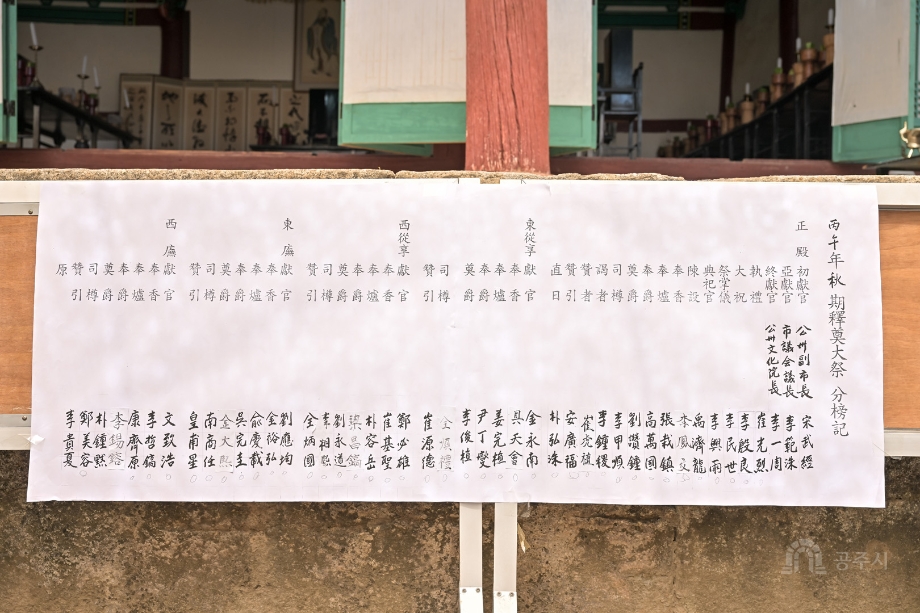 丙午年 秋 期釋奠大祭 分榜記
正殿 初獻官 公州副市長 宋武經
亞獻官 市議会議長 李範洙
終獻官 公州文化院長 李一周
執禮 崔光烈
大祝 李殷良
祭掌儀 李民世
典祀官 李興雨
陳設 禹濟龍
奉香 李鳳文
奉爐 張哉鎮
奉爵 高萬國
奠爵 劉鑽鐘
司樽 李甲順
謁者 李鍾稷
贊者
贊引 安廣福
直日 朴弘洙
東從享 獻官 金永南
奉香 具天會
奉爵 姜完植
奠爵 尹丁燮
李俊植
司樽
贊引 崔源德
西從享 獻官 鄭必雄
奉香 崔基聖
奉爐 朴容岳
奉爵 梁昌鎬
奠爵 劉永道
司樽 李相
贊引 全炳國
東廡 獻官 劉應均
奉香 金裕弘
奉爐 俞慶載
奉爵 吳元圭
奠爵 金大熙
司樽 南高任
贊引 皇甫星
西廡 獻官 文敦浩
奉香 李哲鎬
奉爐 康齊原
奉爵 李錫
奠爵 朴鍾默
司樽 鄭美容
贊引 李貴夏
原
공주시